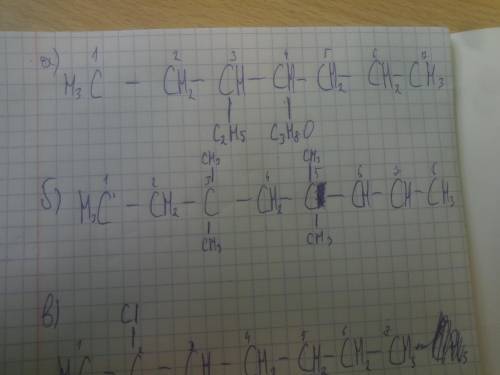 а)
1 2 3 4 5 6 7
H₃C — CH₂ — CH — CH — CH₂ CH₂ — CH₃
C₂H₅ C₃H₈O
CH₃ CH₃
б)
1 2 3 4 5 6 7 8
H₃C — CH₂ — C — CH₂ — C — CH — CH — CH₃
CH₃ CH₃
в)
Cl
1 2 3 4 5 6
H₃C — C — CH — CH₂ — CH₂ — CH₂ — CH₃ —